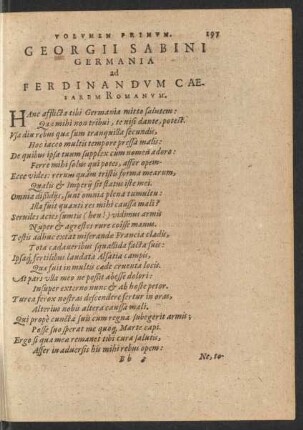 VOLVMEN PRIMVM. 197
GEORGII SABINI
GERMANIA
ad
FERDINANDVM CAE-
SAREM ROMANVM.
HAnc afflicta tibi Germania mitto salutem:
Quæ mihi non tribui, te nisi dante, potest.
Vsa diu rebus quæ sum tranquilla secundis,
Hoc iaceo multis tempore pressa malis:
De quibus ipsa tuum supplex cum nomen adora:
Ferre mihi solus qui potes, affer opem.
Ecce vides: rerum quàm tristis forma mearum,
Qualis & Imperij sit status iste mei.
Omnia dissidijs, sunt omnia plena tumultu:
Illa fuit quantis res mihi caussa malis?
Serviles acies sumtis (heu!) vidimus armis
Nuper & agrestes rure coisse manus.
Testis adhuc extat miserandæ Francia cladis,
Tota cadaveribus squallida facta suis:
Ipsaq́; fertilibus laudata Alsatia campis,
Quæ fuit in multis cæde cruenta locis.
At parvilla meo ne possit abesse dolori:
Insuper externo nunc & ab hoste petor.
Turca ferox nostras descendere fertur in oras,
Alterius nobis altera caussa mali.
Qui propè cuncta suis cum regna subegerit armis;
Posse suo sperat me quoq́; Marte capi.
Ergo si qua meæ remanet tibi cura salutis,
Affer in adversis his mihi rebus opem:
Bb Ne, ta-